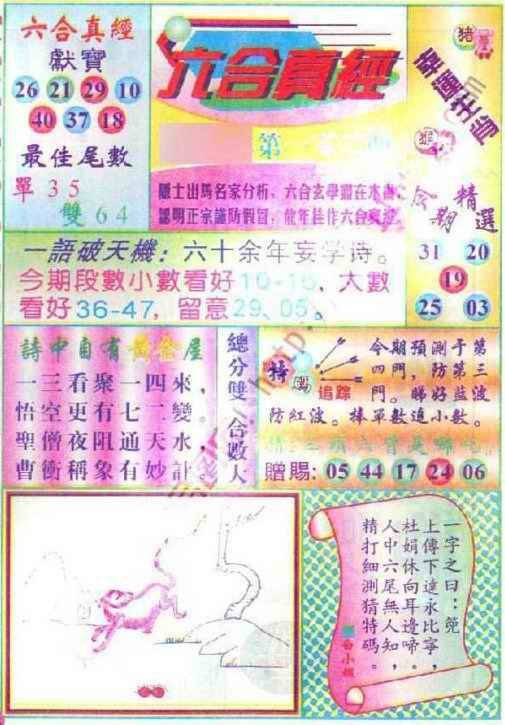 六合真經
獻寶
26 21 29 10
40 37 18
最佳尾數
單 3 5
雙 6 4
六合真經
第
隱士出馬名家分析，六合玄學盡在本曲，
認明正宗謹防假冒，
豬
幸運生肖
今期精選
31 20
19
25 03
一語破天機：六十余年妄学诗。
今期段數小數看好10-15，大數
看好36-47，留意29、05。
詩中自有黃金屋
一三看聚一四來，
悟空更有七二變。
聖僧夜阻通天水，
曹衝稱象有妙計。
總分雙 合數大
特碼
追踪
今期預測于第
四門，防第三
門。睇好藍波
防紅波。擇單數追小數。
贈賜：05 44 17 24 06
一字之曰：蒐
上傳下達永比寧，
杜娟休向耳邊啼，
人中六尾無人知，
精打細測猜特碼。
白小姐